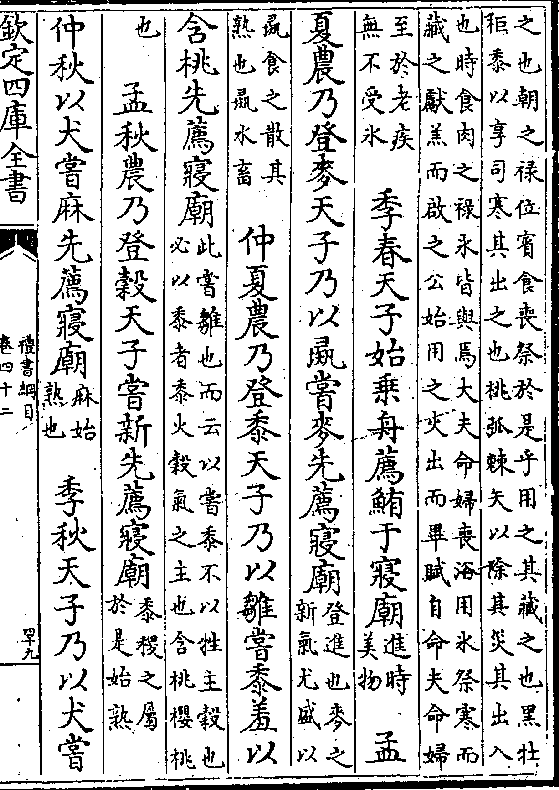 之也朝之祿位賓食喪祭於是乎用之其藏之也黑牡
秬黍以享司寒其出之也桃弧棘矢以除其災其出入
也時食肉之祿氷皆與焉大夫命婦喪浴用氷祭寒而
藏之獻羔而啟之公始用之火出而畢賦自命夫命婦
至於老疾
無不受氷
季春天子始乗舟薦鮪于寢廟
進時
美物
孟
夏農乃登麥天子乃以彘嘗麥先薦寢廟
登進也麥之
新氣尤盛以
彘食之散其
熟也彘水畜
仲夏農乃登黍天子乃以雛嘗黍羞以
含桃先薦寢廟
此嘗雛也而云以嘗黍不以牲主穀也
必以黍者黍火穀氣之主也含桃櫻桃
也
孟秋農乃登穀天子嘗新先薦寢廟
黍稷之屬
於是始熟
仲秋以犬嘗麻先薦寢廟
麻始
熟也
季秋天子乃以犬嘗
欽定四庫全書
禮書綱目
卷四十二
罕九